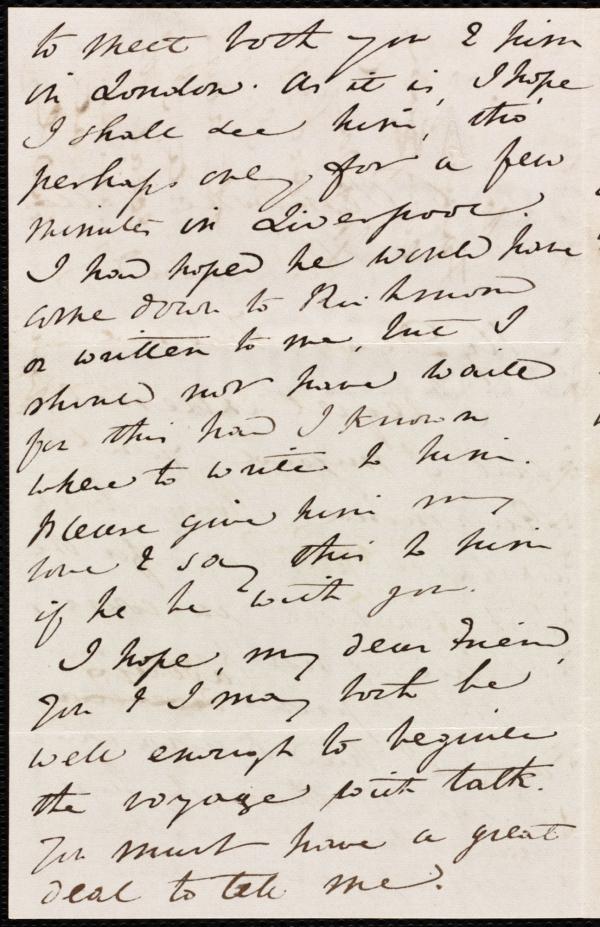 to meet both you & him
in London. As it is, I hope
I shall see him, tho'
perhaps only for a few
minutes in Liverpool.
I had hoped he would have
come down to Richmond
or written to me, but I
should not have waited
for this had I known
where to write to him.
Please give him my
love & say this to him
if he be with you.
I hope, my dear Friend,
you & I may both be
well enough to beguile
the voyage with talk.
You must have a great
deal to tell me.